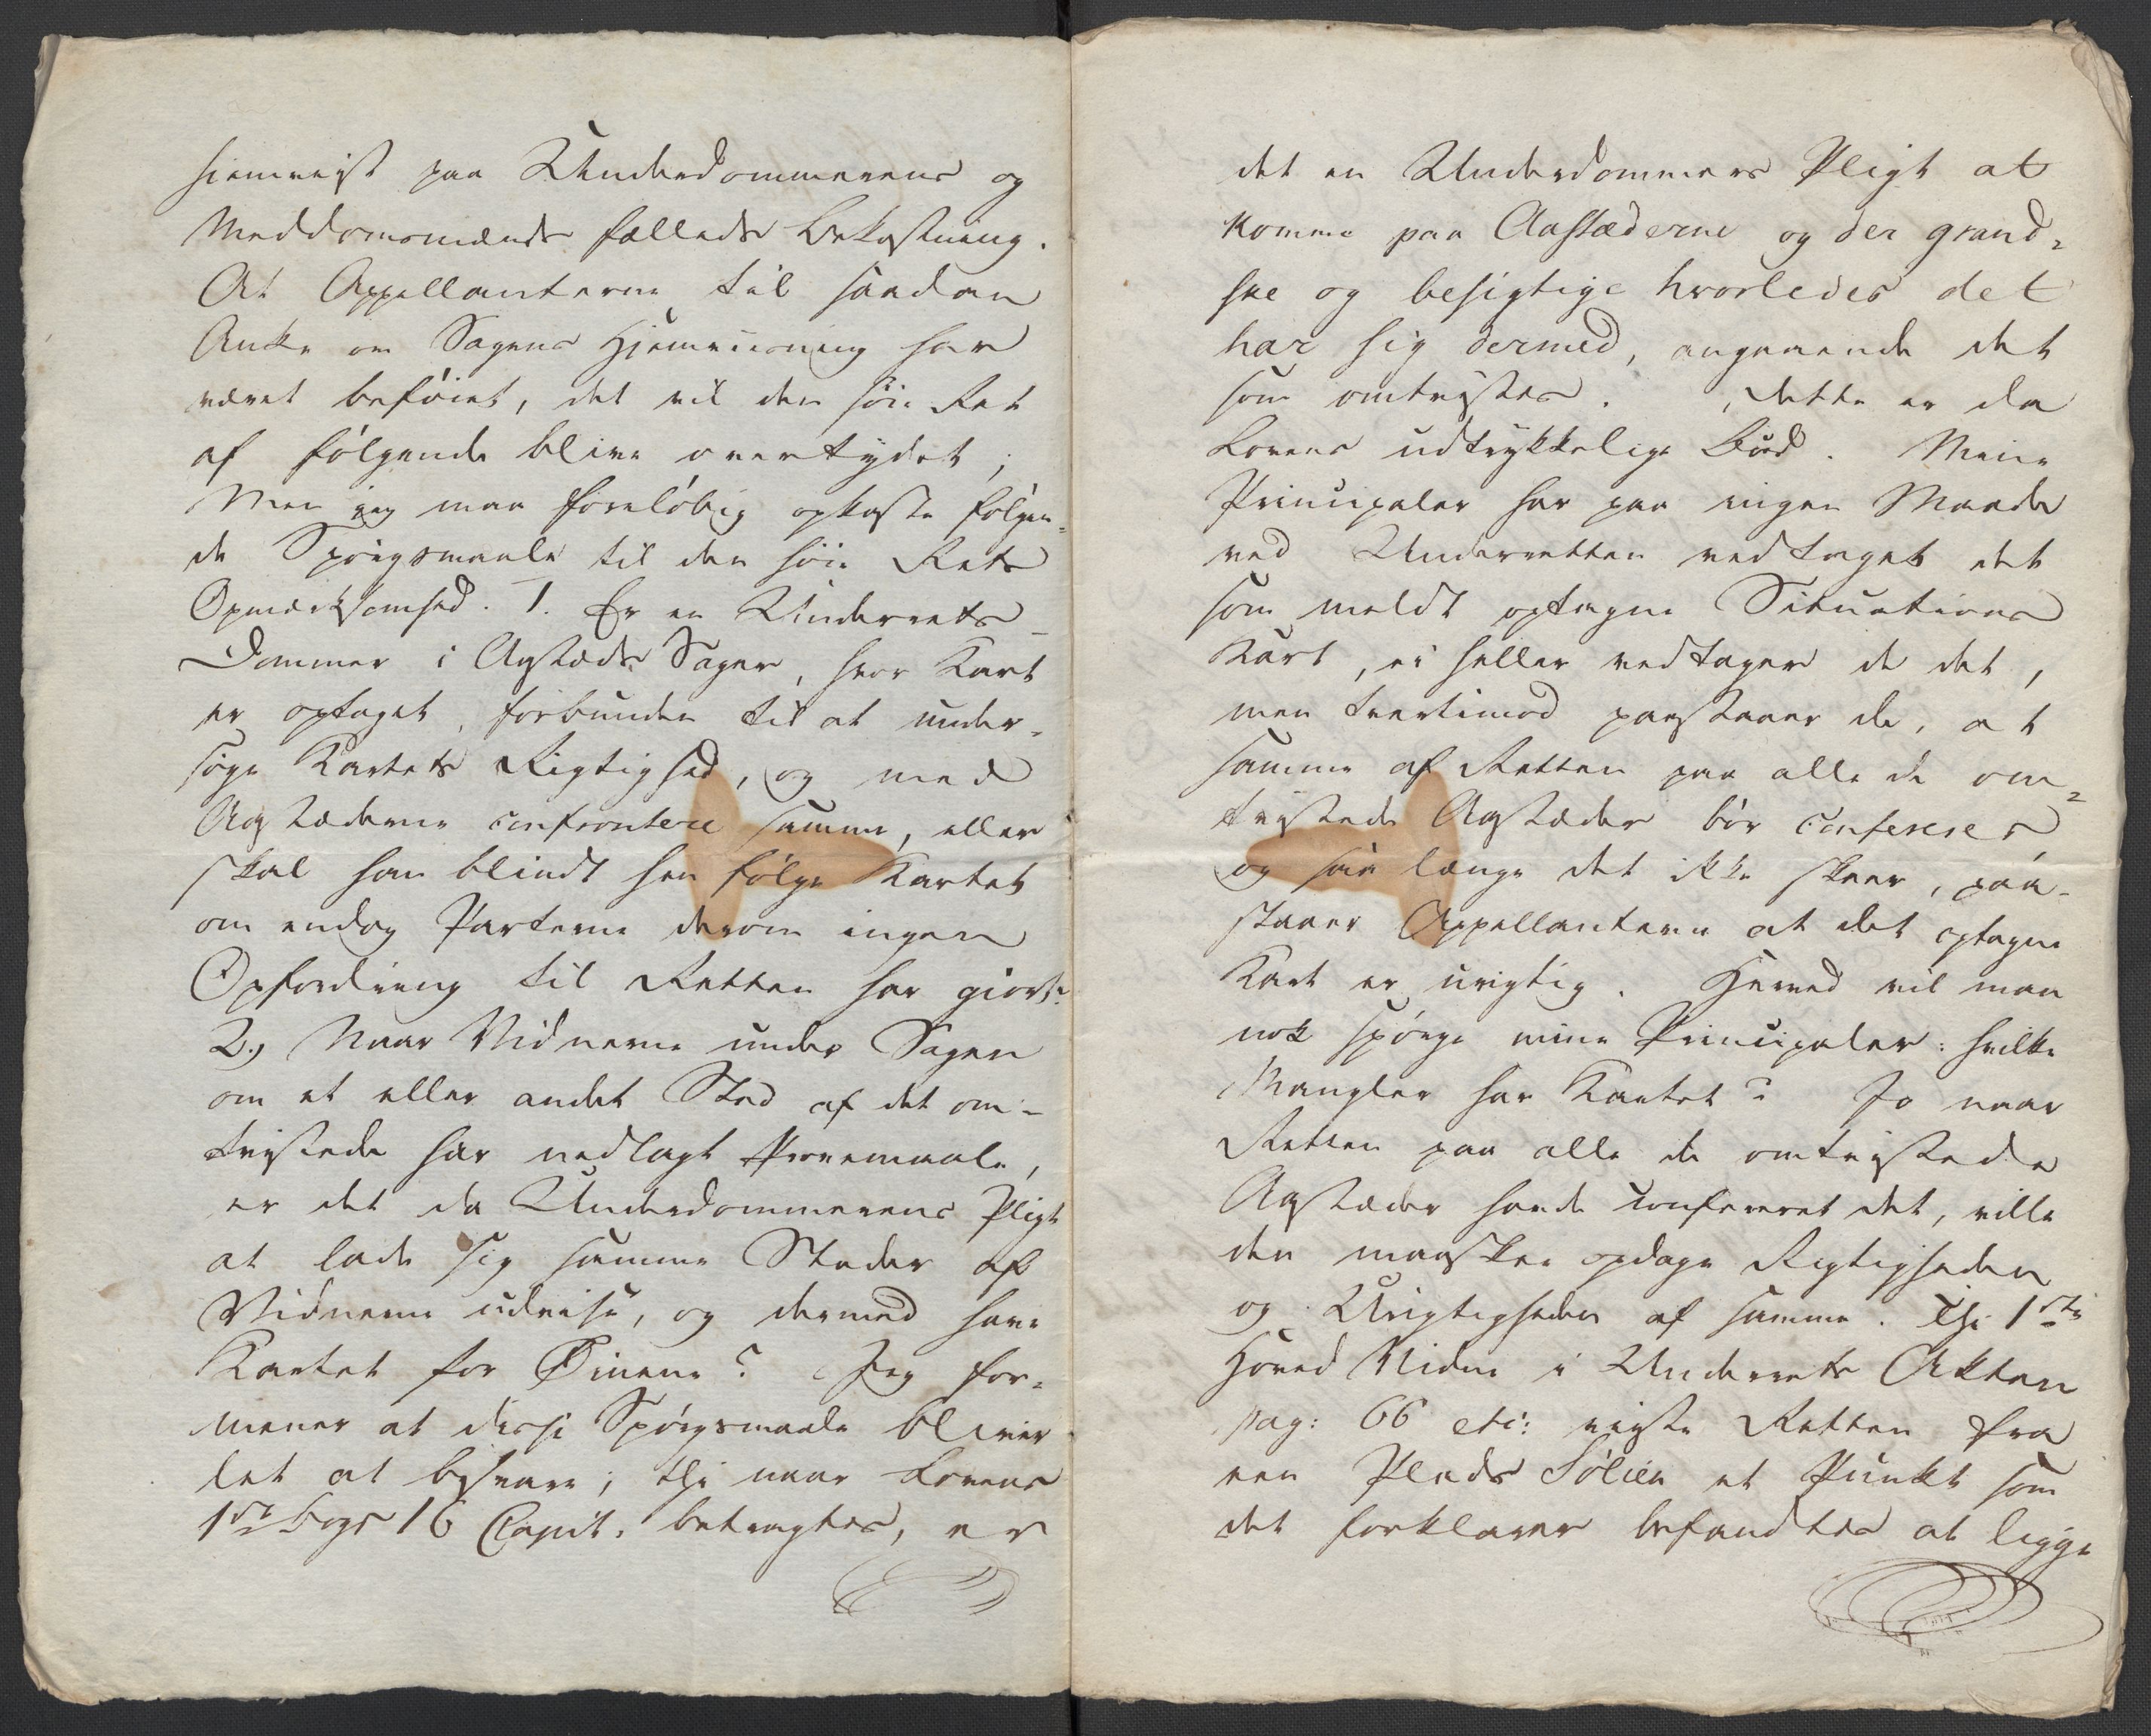 hiemviist paa Underdommerens og
Meddomsmænds fælleds Bekostning.
At Appellanterne til saadan
Anke om Sagens Hjemviisning har
været beføiet, det vil den høie Ret
af følgende blive overtydet;
Men jeg maa foreløbig opkaste følgen-
de Spørgsmaale til den høie Rets
Opmærksomhed. 1. Er en Underrets-
Dommer i Aastæds Sager, hvor Kart
er optaget, forbunden til at under-
søge Kartets Rigtighed, og med
Aastæderne confrontere samme, eller
skal han blindt hen følge Kartet
om endog Parterne derom ingen
Opfordring til Retten har giort?
2.) Naar Vidnerne under Sagen
om et eller andet Sted af det om-
tvistede har nedlagt Provemaale,
er det da Underdommerens Pligt
at lade sig samme Steder af
Vidnerne udvise, og dermed have
Kartet for Øinene? Jeg for-
mener at disse Spørgsmaale bliver
let at besvare; thi naar Lovens
1ste Bogs 16 Capit. betragtes, er
det en Underdommers Pligt at
komme paa Aastæderne og der grand-
ske og besigtige hvorledes det
har sig dermed, angaaende det
som omtvistes. Dette er da
Lovens udtrykkelige Bud. Mine
Principaler har paa ingen Maade
ved Underretten vedtaget det
som meldt optagne Situations
Kart, ei heller vedtager de det,
men tvertimod paastaaer de, at
samme af Retten paa alle de om-
tvistede Aastæder bør confereres,
og saa længe det ikke skeer, paa-
staaer Appellanterne at det optagne
Kart er urigtig. Herved vil man
nok spørge mine Principaler: hvilke
Mangler har Kartet? Jo naar
Retten paa alle de omtvistede
Aastæder havde confereret det, ville
den maaskee opdage Rigtigheden
og Urigtigheden af samme. Thi 1ste
Hoved Vidne i Underrets Akten
pag: 66 etc: viiste Retten fra
een Plads Sølien et Punkt som
det forklarer befandtes at ligge